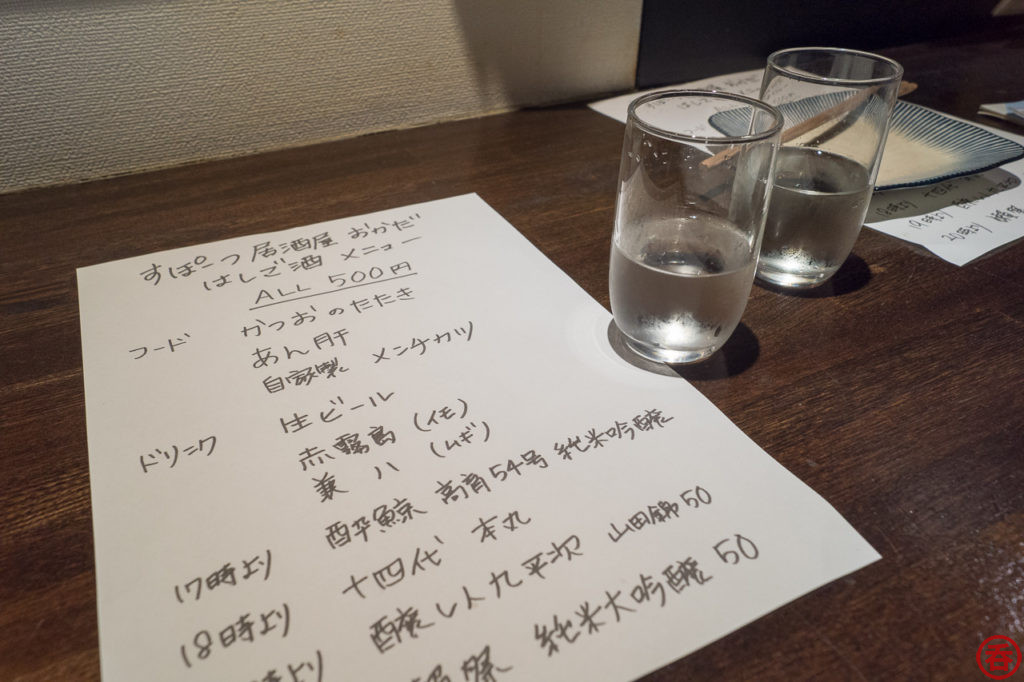 すぽーつ居酒屋 おかだ
はしご酒 メニュー
ALL 500円
フード かつおのたたき
あん肝
自家製 メンチカツ
ドリンク 生ビール
赤霧島 (イモ)
兼八 (ムギ)
酔鯨 高育54号 純米吟醸
17時より 十四代 本丸
18時より 醸し人九平次 山田錦50
時より 祭 純米大吟醸 50
19時より
20時より
呑